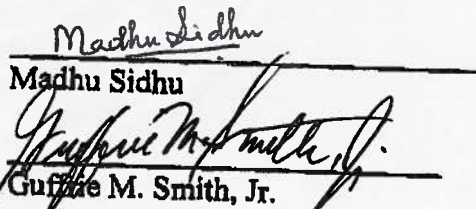 Madhu Sidhu
Madhu Sidhu
Guthrie M. Smith, Jr.
Guthrie M. Smith, Jr.